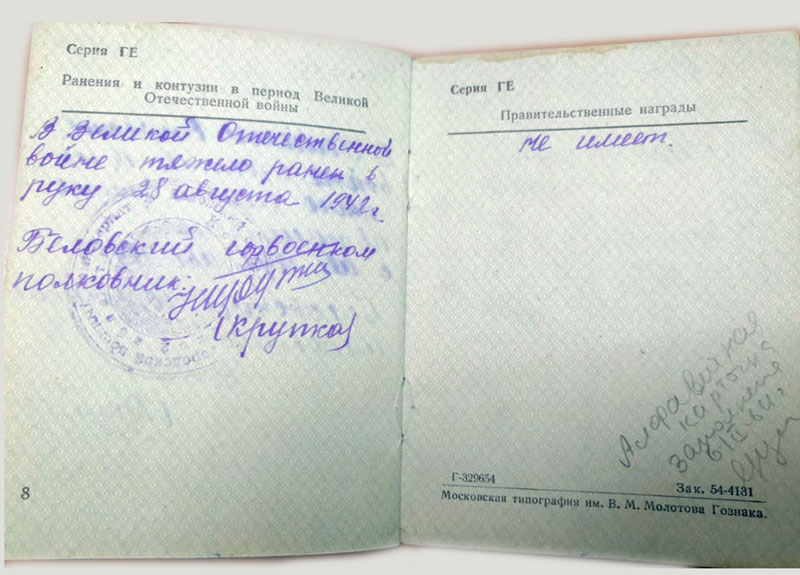 Серия ГЕ
Ранения и контузии в период Великой
Отечественной войны
В Великой Отечественной
войне тяжело ранен в
руку 28 августа 1942 г.
Беловский горвоенком
полковник:
(Крупка)
8
Серия ГЕ
Правительственные награды
Не имеет.
Алфавитная
карточка
заполнена
Г-329654
Зак. 54-4131
Московская типография им. В. М. Молотова Гознака.